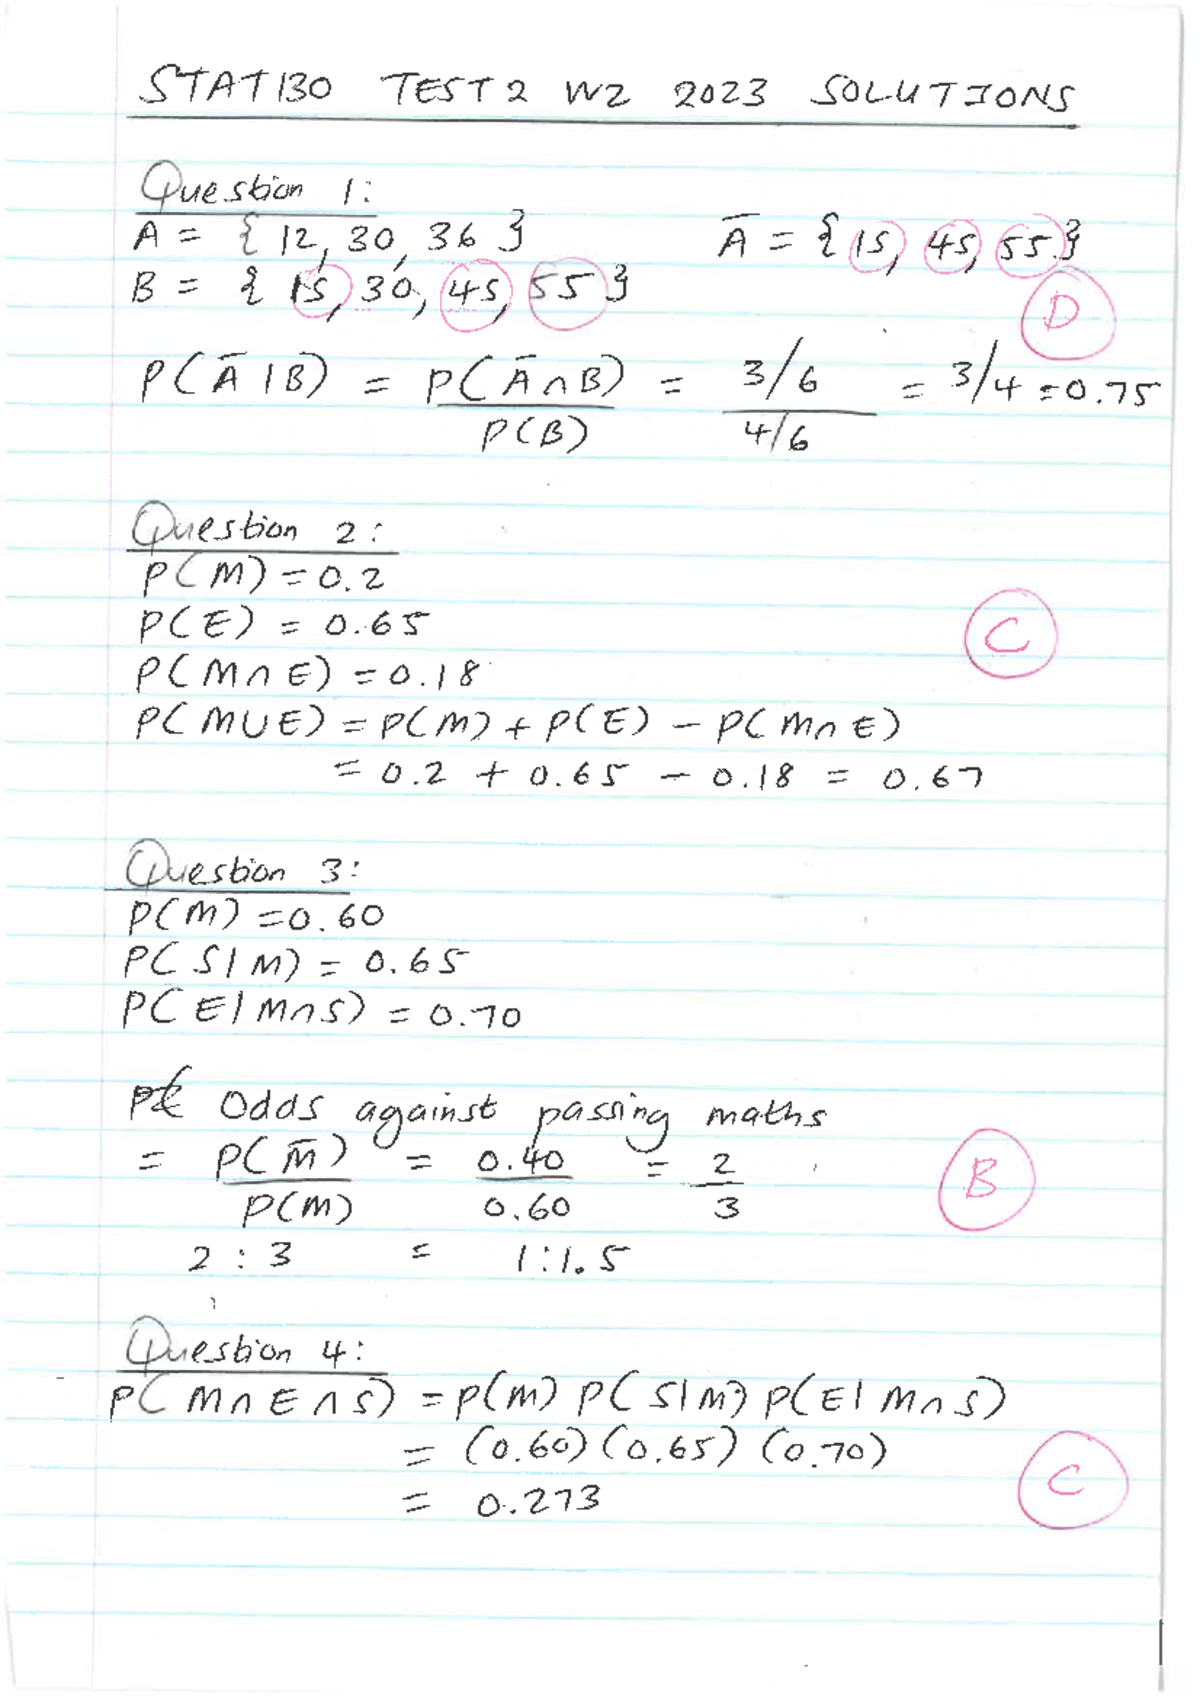 STAT130 TEST 2 W2 2023 SOLUTIONS
Question 1:
A = { 12, 30, 36 } Ā = { 15, 45, 55 }
B = { 15, 30, 45, 55 }
D
P(Ā|B) = P(Ā∩B) / P(B) = 3/6 / 4/6 = 3/4 = 0.75
Question 2:
P(M) = 0.2
P(E) = 0.65
C
P(M∩E) = 0.18
P(M∪E) = P(M) + P(E) – P(M∩E)
= 0.2 + 0.65 – 0.18 = 0.67
Question 3:
P(M) = 0.60
P(S|M) = 0.65
P(E|M∩S) = 0.70
Odds against passing maths
= P(M̄) / P(M) = 0.40 / 0.60 = 2 / 3
B
2 : 3 = 1 : 1.5
Question 4:
P(M∩E∩S) = P(M) P(S|M) P(E|M∩S)
= (0.60)(0.65)(0.70)
C
= 0.273